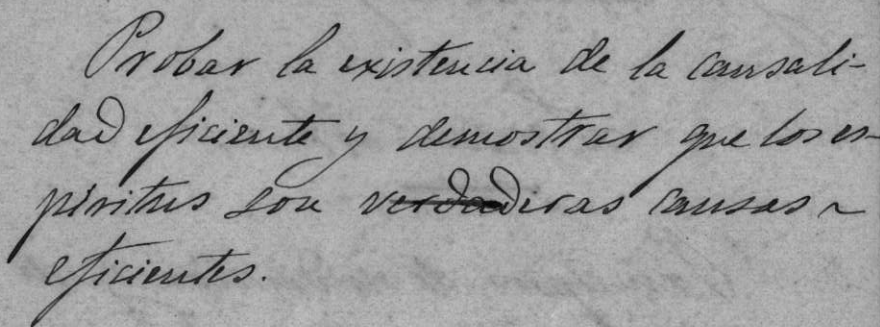 Probar la existencia de la causali-
dad eficiente y demostrar que los es-
píritus son verdaderas causas ~
eficientes.